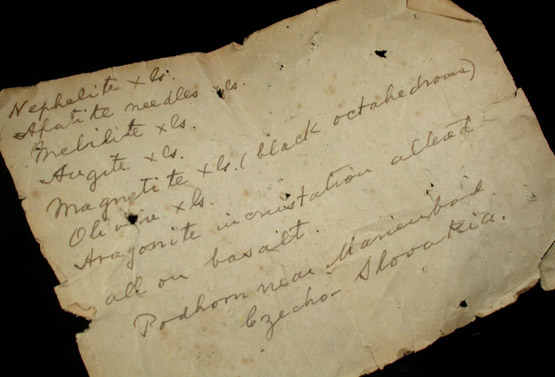 Nephelite xls.
Apatite needles xls.
Melilite xls.
Augite xls.
Magnetite xls. (black octahedrons)
Olivine xls.
Aragonite incrustation
all on basalt.
Podhorn near Marienbad
Czecho-Slovakia.